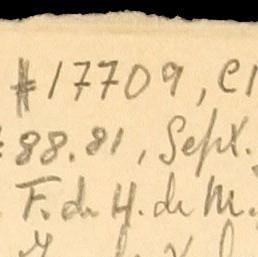 #17709, el
88.81, Sept.
F. de H. de M.